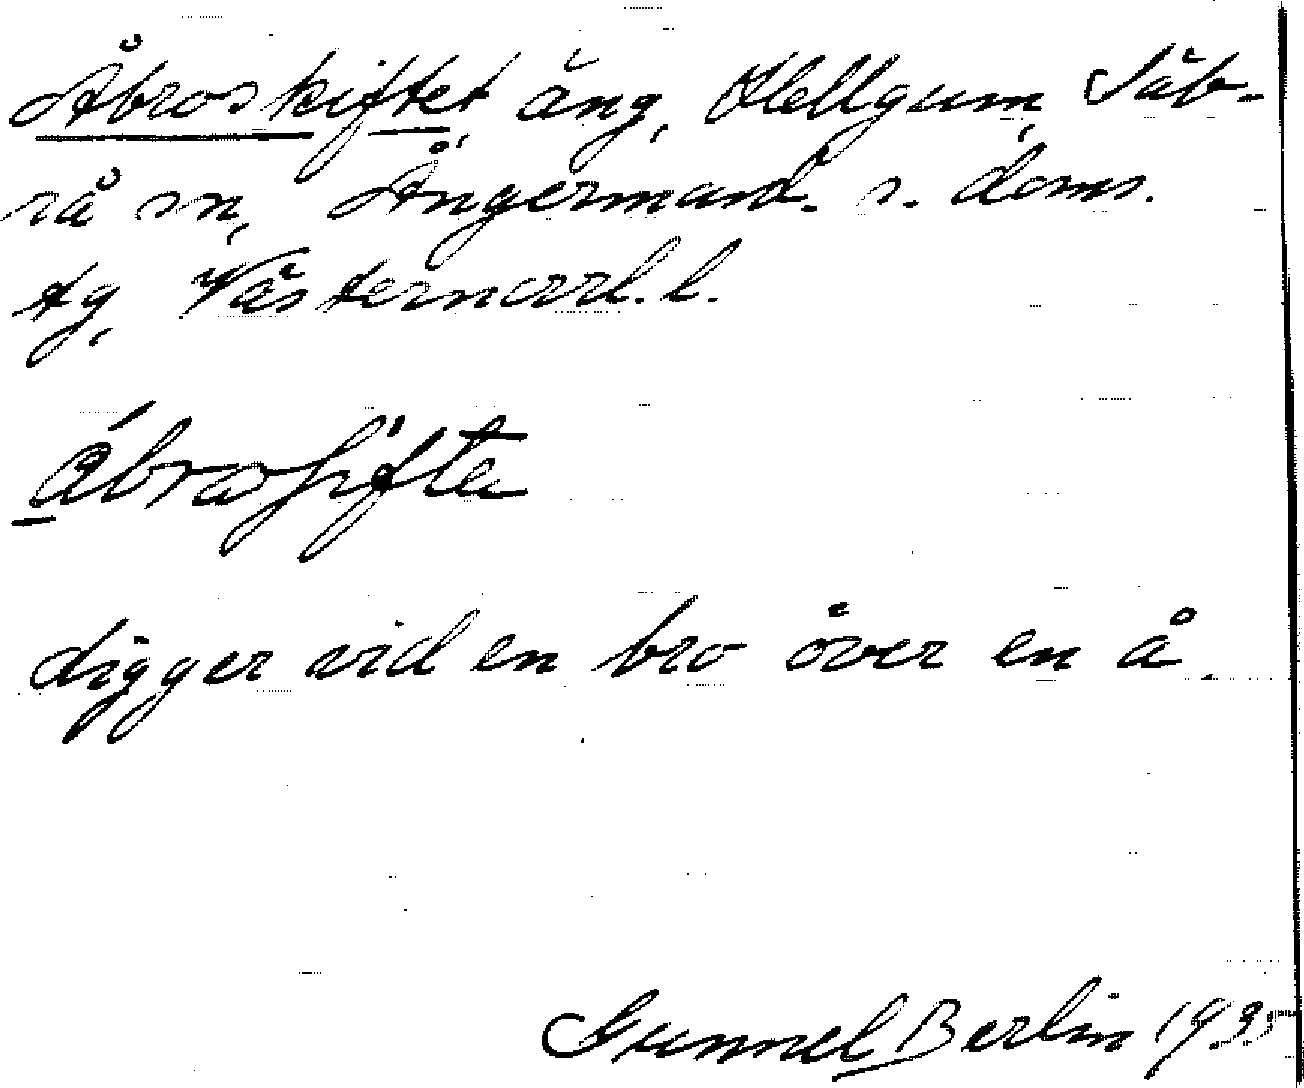 Åbroskiftet, äng, Hellgum, Säb-
rå sn, Ångermanl. s. doms.
tg, Västernorrl. l.
åbrosifte
Ligger vid en bro över en å.
Gunnel Berlin 1935